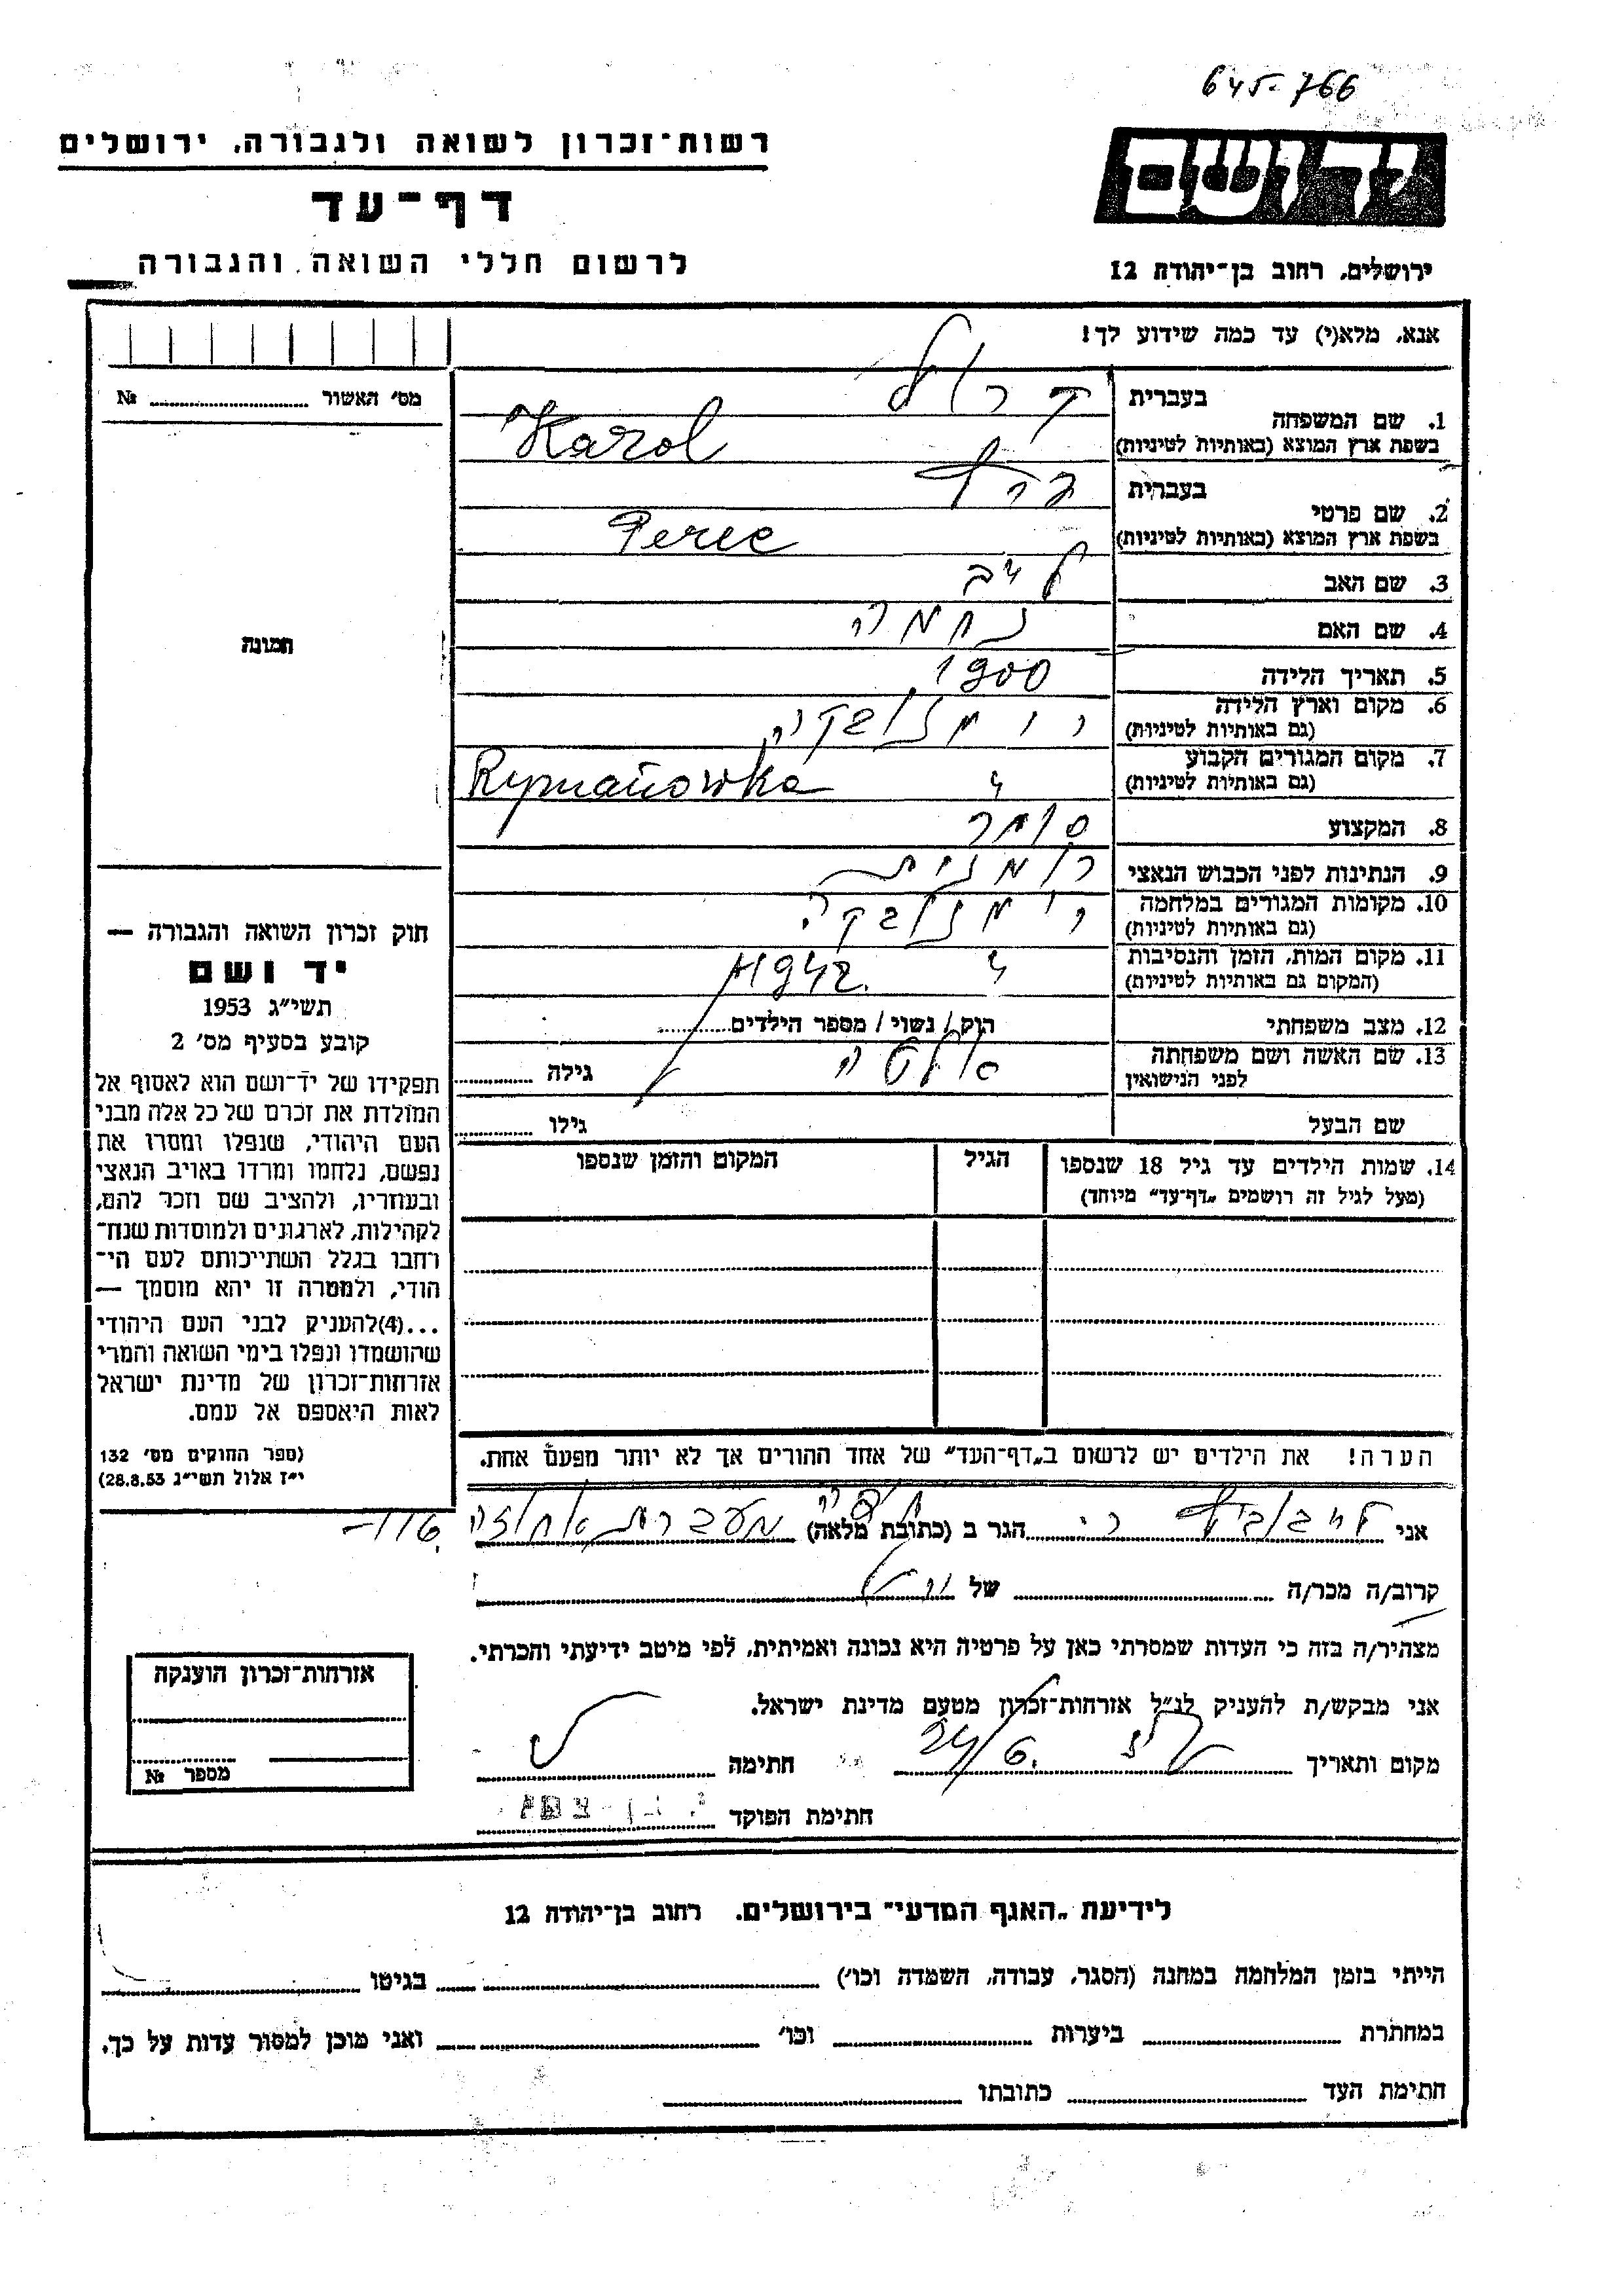 645-766
רשות־זכרון לשואה ולגבורה, ירושלים
דף־עד
לרשום חללי השואה והגבורה
יד ושם
ירושלים, רחוב בן־יהודה 12
אנא, מלא(י) עד כמה שידוע לך!
מס׳ האשור № 
תמונה
בעברית
קרול
1. שם המשפחה
בשפת ארץ המוצא (באותיות לטיניות)
Karol
בעברית
פרץ
2. שם פרטי
בשפת ארץ המוצא (באותיות לטיניות)
Perec
3. שם האב לייב
4. שם האם נחמה
5. תאריך הלידה 1900
6. מקום וארץ הלידה
(גם באותיות לטיניות)
7. מקום המגורים הקבוע
(גם באותיות לטיניות)
Rymanówka
8. המקצוע סוחר
9. הנתינות לפני הכבוש הנאצי
10. מקומות המגורים במלחמה
(גם באותיות לטיניות)
11. מקום המות, הזמן והנסיבות 1942
(המקום גם באותיות לטיניות)
12. מצב משפחתי רווק / נשוי / מספר הילדים
13. שם האשה ושם משפחתה
לפני הנישואין
גילה
שם הבעל גילו
14. שמות הילדים עד גיל 18 שנספו הגיל המקום והזמן שנספו
(מעל לגיל זה רושמים „דף־עד״ מיוחד)
הערה! את הילדים יש לרשום ב„דף־העד״ של אחד ההורים אך לא יותר מפעם אחת.
חוק זכרון השואה והגבורה —
יד ושם
תשי״ג 1953
קובע בסעיף מס׳ 2
תפקידו של יד־ושם הוא לאסוף אל
המולדת את זכרם של כל אלה מבני
העם היהודי, שנפלו ומסרו את
נפשם, נלחמו ומרדו באויב הנאצי
ובעוזריו, ולהציב שם וזכר להם,
לקהילות, לארגונים ולמוסדות שנח־
רחבו בגלל השתייכותם לעם הי־
הודי, ולמטרה זו יהא מוסמך —
...(4)להעניק לבני העם היהודי
שהושמדו ונפלו בימי השואה והמרי
אזרחות־זכרון של מדינת ישראל
לאות היאספם אל עמם.
(ספר החוקים מס׳ 132
י״ז אלול תשי״ג 28.8.53)
אני הגר ב (כתובת מלאה) מעברת
קרוב/ה מכר/ה של
מצהיר/ה בזה כי העדות שמסרתי כאן על פרטיה היא נכונה ואמיתית, לפי מיטב ידיעתי והכרתי.
אני מבקש/ת להעניק לנ״ל אזרחות־זכרון מטעם מדינת ישראל.
מקום ותאריך 24/6. חתימה
חתימת הפוקד
אזרחות־זכרון הוענקה
מספר №
לידיעת „האגף המדעי״ בירושלים, רחוב בן־יהודה 12
הייתי בזמן המלחמה במחנה (הסגר, עבודה, השמדה וכו׳) בגיטו
במחתרת ביערות וכו׳ ואני מוכן למסור עדות על כך.
חתימת העד כתובתו